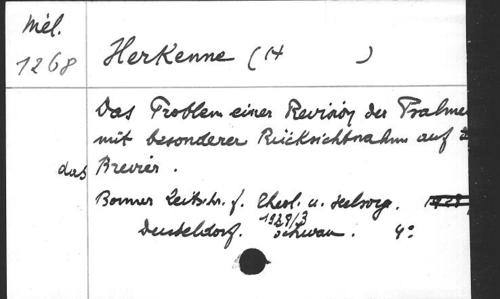 Mél.
1268
Herkenne (H )
Das Problem einer Revision der Psalmen
mit besonderer Rücksichtnahme auf
das Brevier.
Bonner Zeitschr. f. Theol. u. Seelsorge.
1929/3
Dusseldorf. Schwan. 4°